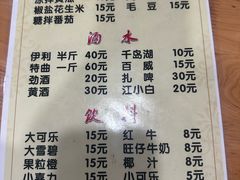 椒盐花生米 15元 毛豆 15元
糖拌番茄 15元
酒水
伊利 半斤 40元 千岛湖 10元
特曲 一斤 60元 百威 15元
劲酒 20元 扎啤 30元
黄酒 30元 江小白 20元
饮料
大可乐 15元 红牛 8元
大雪碧 15元 旺仔牛奶 8元
果粒橙 15元 椰汁 8元
15元 小可乐 5元